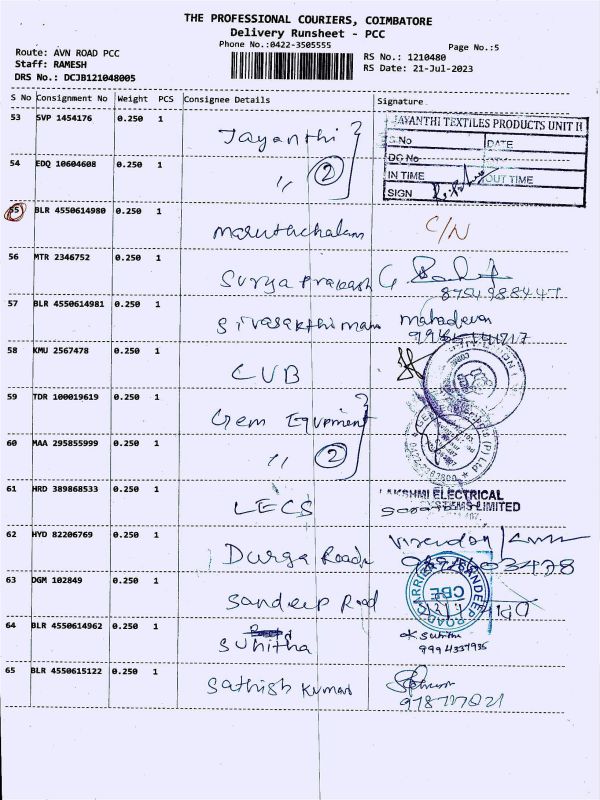 THE PROFESSIONAL COURIERS, COIMBATORE
Delivery Runsheet - PCC
Phone No.:0422-3505555
Page No.:5
Route: AVN ROAD PCC
Staff: RAMESH
DRS No.: DCJB121048005
RS No.: 1210480
RS Date: 21-Jul-2023
S No Consignment No Weight PCS Consignee Details Signature
53 SVP 1454176 0.250 1 Jayanthi
JAYANTHI TEXTILES PRODUCTS UNIT II
G No DATE
DC No
IN TIME OUT TIME
SIGN
54 EDQ 10604608 0.250 1 " 2
55 BLR 4550614980 0.250 1 Maruthchalam C/N
56 MTR 2346752 0.250 1 Surya Prakash G
8754988447
57 BLR 4550614981 0.250 1 Sivasakthimani Mahadevan
58 KMU 2567478 0.250 1 CUB
59 TDR 100019619 0.250 1 Gem Equpment
60 MAA 295855999 0.250 1 " 2
61 HRD 389868533 0.250 1 LECS
LAKSHMI ELECTRICAL
SYSTEMS LIMITED
62 HYD 82206769 0.250 1 Durga Roads
63 DGM 102849 0.250 1 Sandeep Road
SANDEEP ROAD CARRIER
CBE
64 BLR 4550614962 0.250 1 Sunitha
Sunitha
9994337935
65 BLR 4550615122 0.250 1 Sathish Kumar